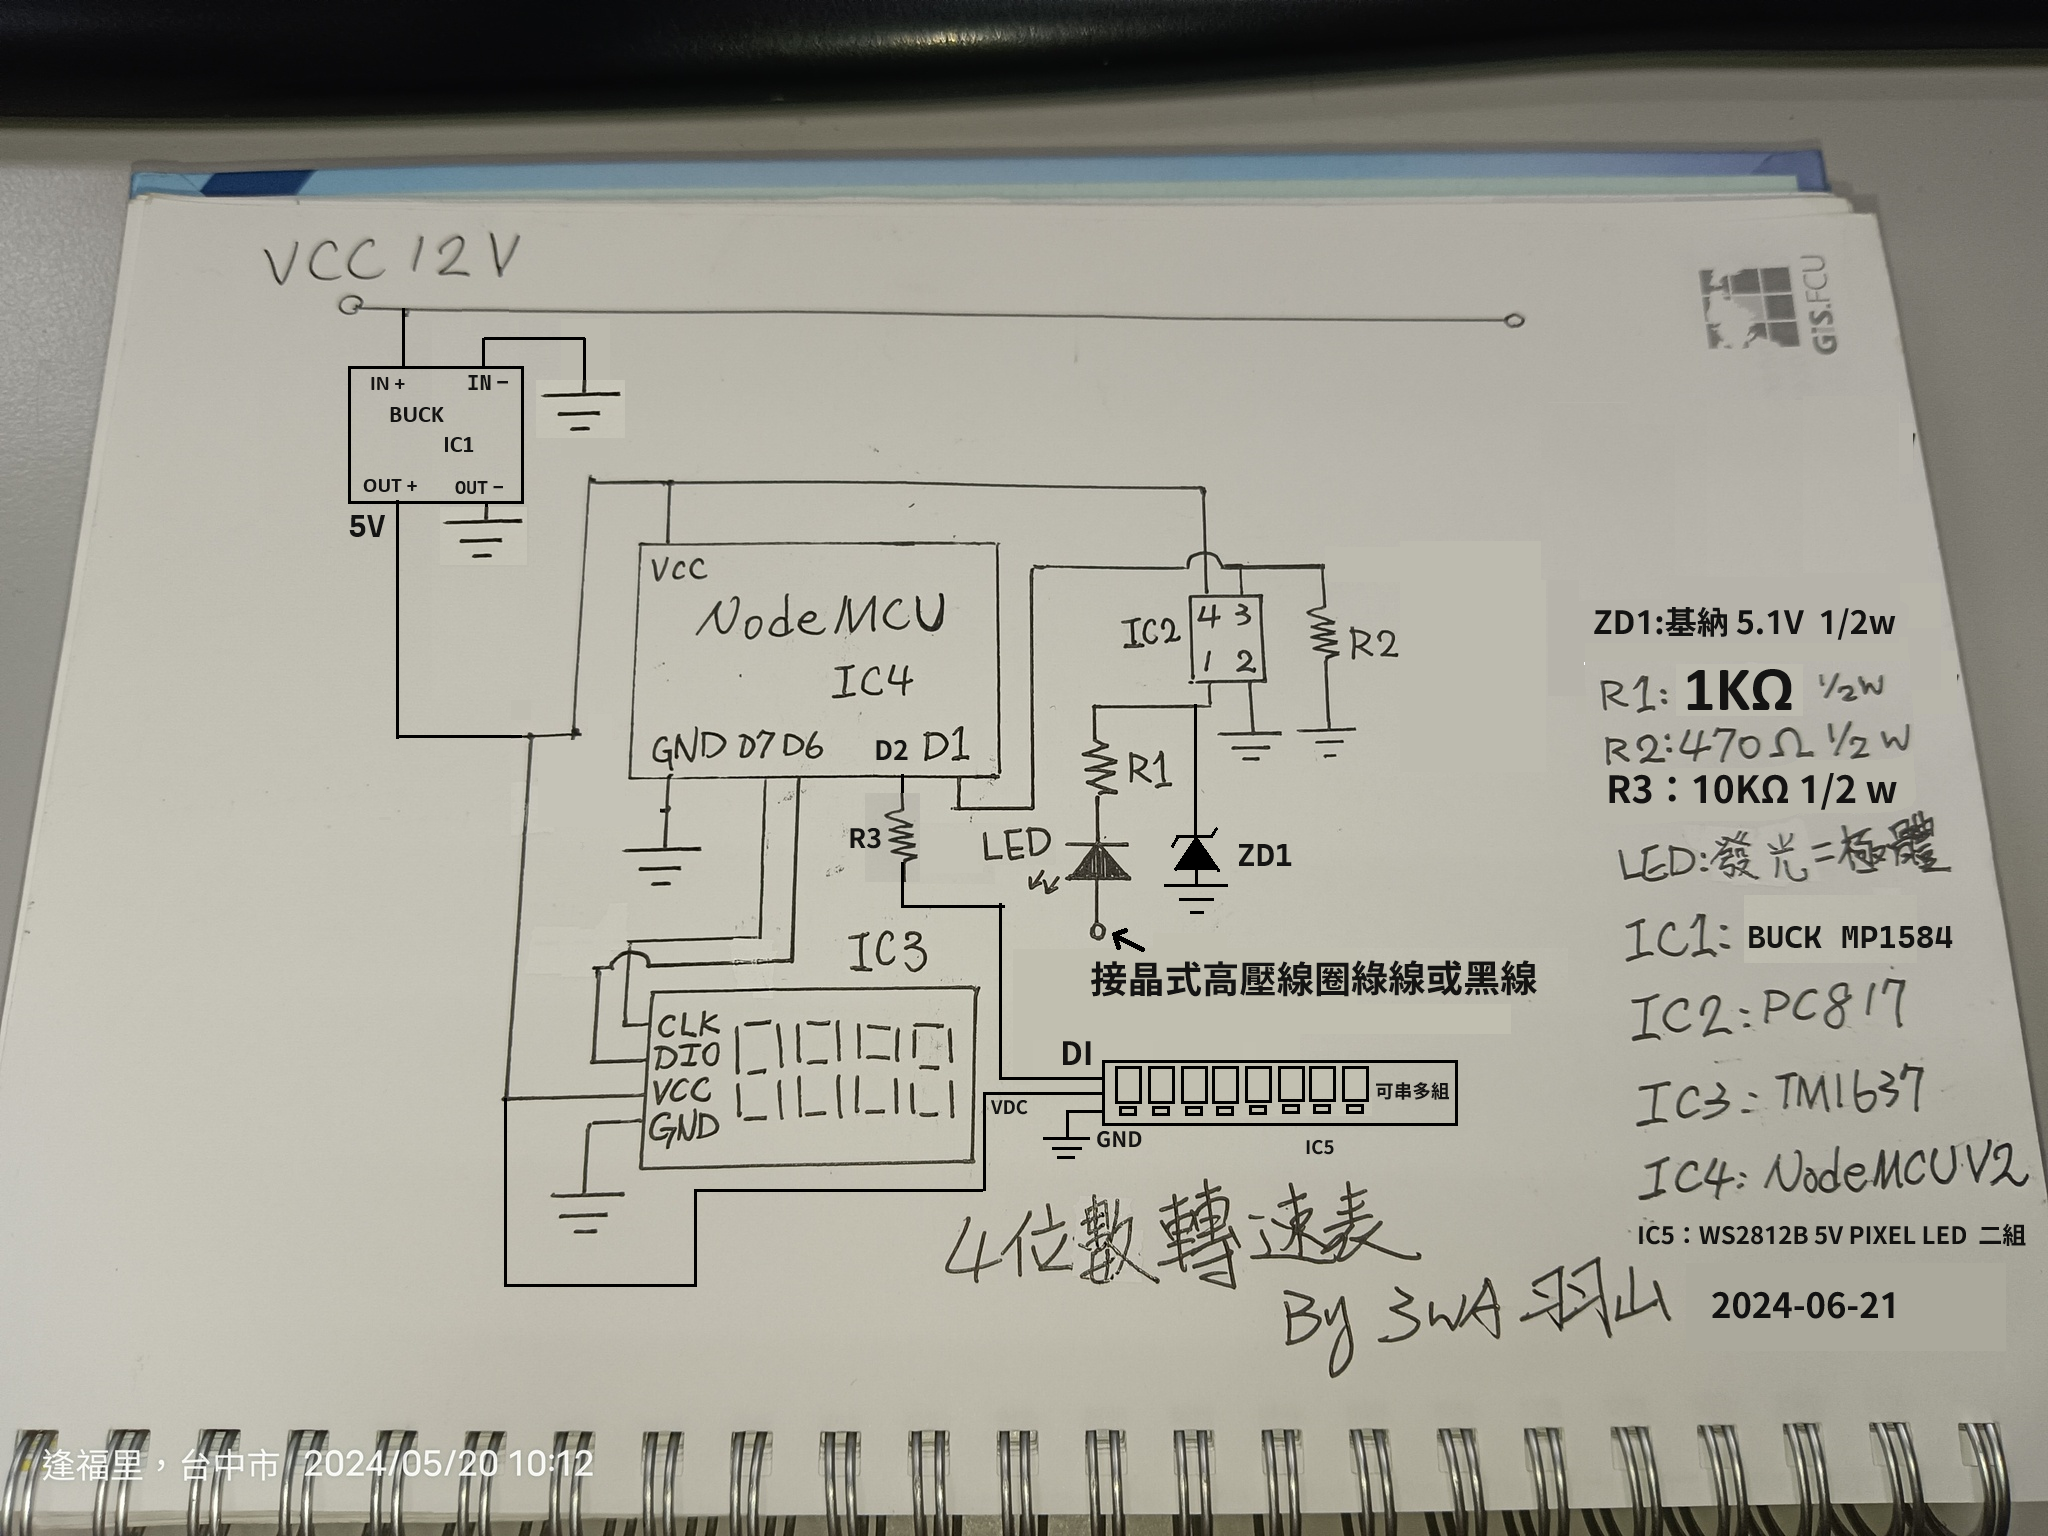 VCC 12V
GIS.FCU
IN + IN −
BUCK
IC1
OUT + OUT −
5V
VCC
NodeMCU
IC4
GND D7 D6 D2 D1
IC2
4 3
1 2
R2
R1
R3
LED
ZD1
接晶式高壓線圈綠線或黑線
IC3
CLK
DIO
VCC
GND
DI
VDC
GND
可串多組
IC5
ZD1:基納 5.1V 1/2w
R1: 1KΩ 1/2W
R2:470Ω 1/2W
R3：10KΩ 1/2 w
LED:發光二極體
IC1: BUCK MP1584
IC2: PC817
IC3: TM1637
IC4: NodeMCUV2
IC5：WS2812B 5V PIXEL LED 二組
4位數轉速表
By 3WA 羽山
2024-06-21
逢福里，台中市 2024/05/20 10:12